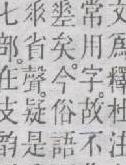 文爲釋
常用字故杜不注
業矣今俗語
豖省聲疑是
七部在支韵